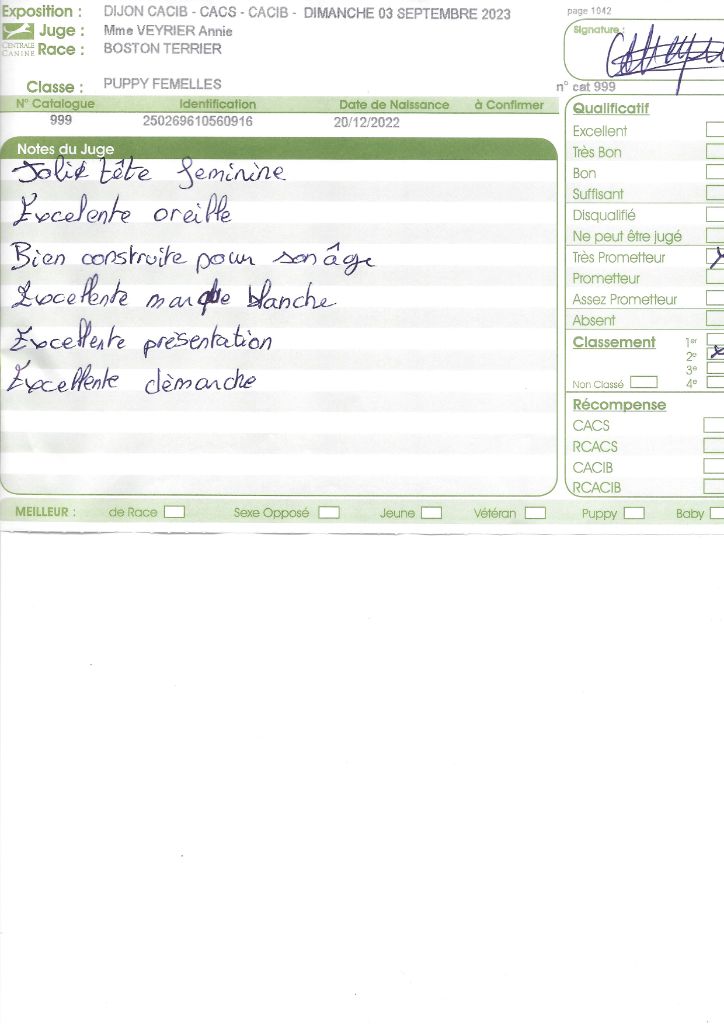 Exposition : DIJON CACIB - CACS - CACIB - DIMANCHE 03 SEPTEMBRE 2023
page 1042
Juge : Mme VEYRIER Annie
Signature :
CENTRALE CANINE
Race : BOSTON TERRIER
Classe : PUPPY FEMELLES
n° cat 999
N° Catalogue Identification Date de Naissance à Confirmer
999 250269610560916 20/12/2022
Notes du Juge
Jolie tête feminine
Excelente oreille
Bien construite pour son âge
Excellente marque blanche
Excellente présentation
Excellente démarche
Qualificatif
Excellent
Très Bon
Bon
Suffisant
Disqualifié
Ne peut être jugé
Très Prometteur x
Prometteur
Assez Prometteur
Absent
Classement 1er
2e x
3e
Non Classé 4e
Récompense
CACS
RCACS
CACIB
RCACIB
MEILLEUR : de Race Sexe Opposé Jeune Vétéran Puppy Baby